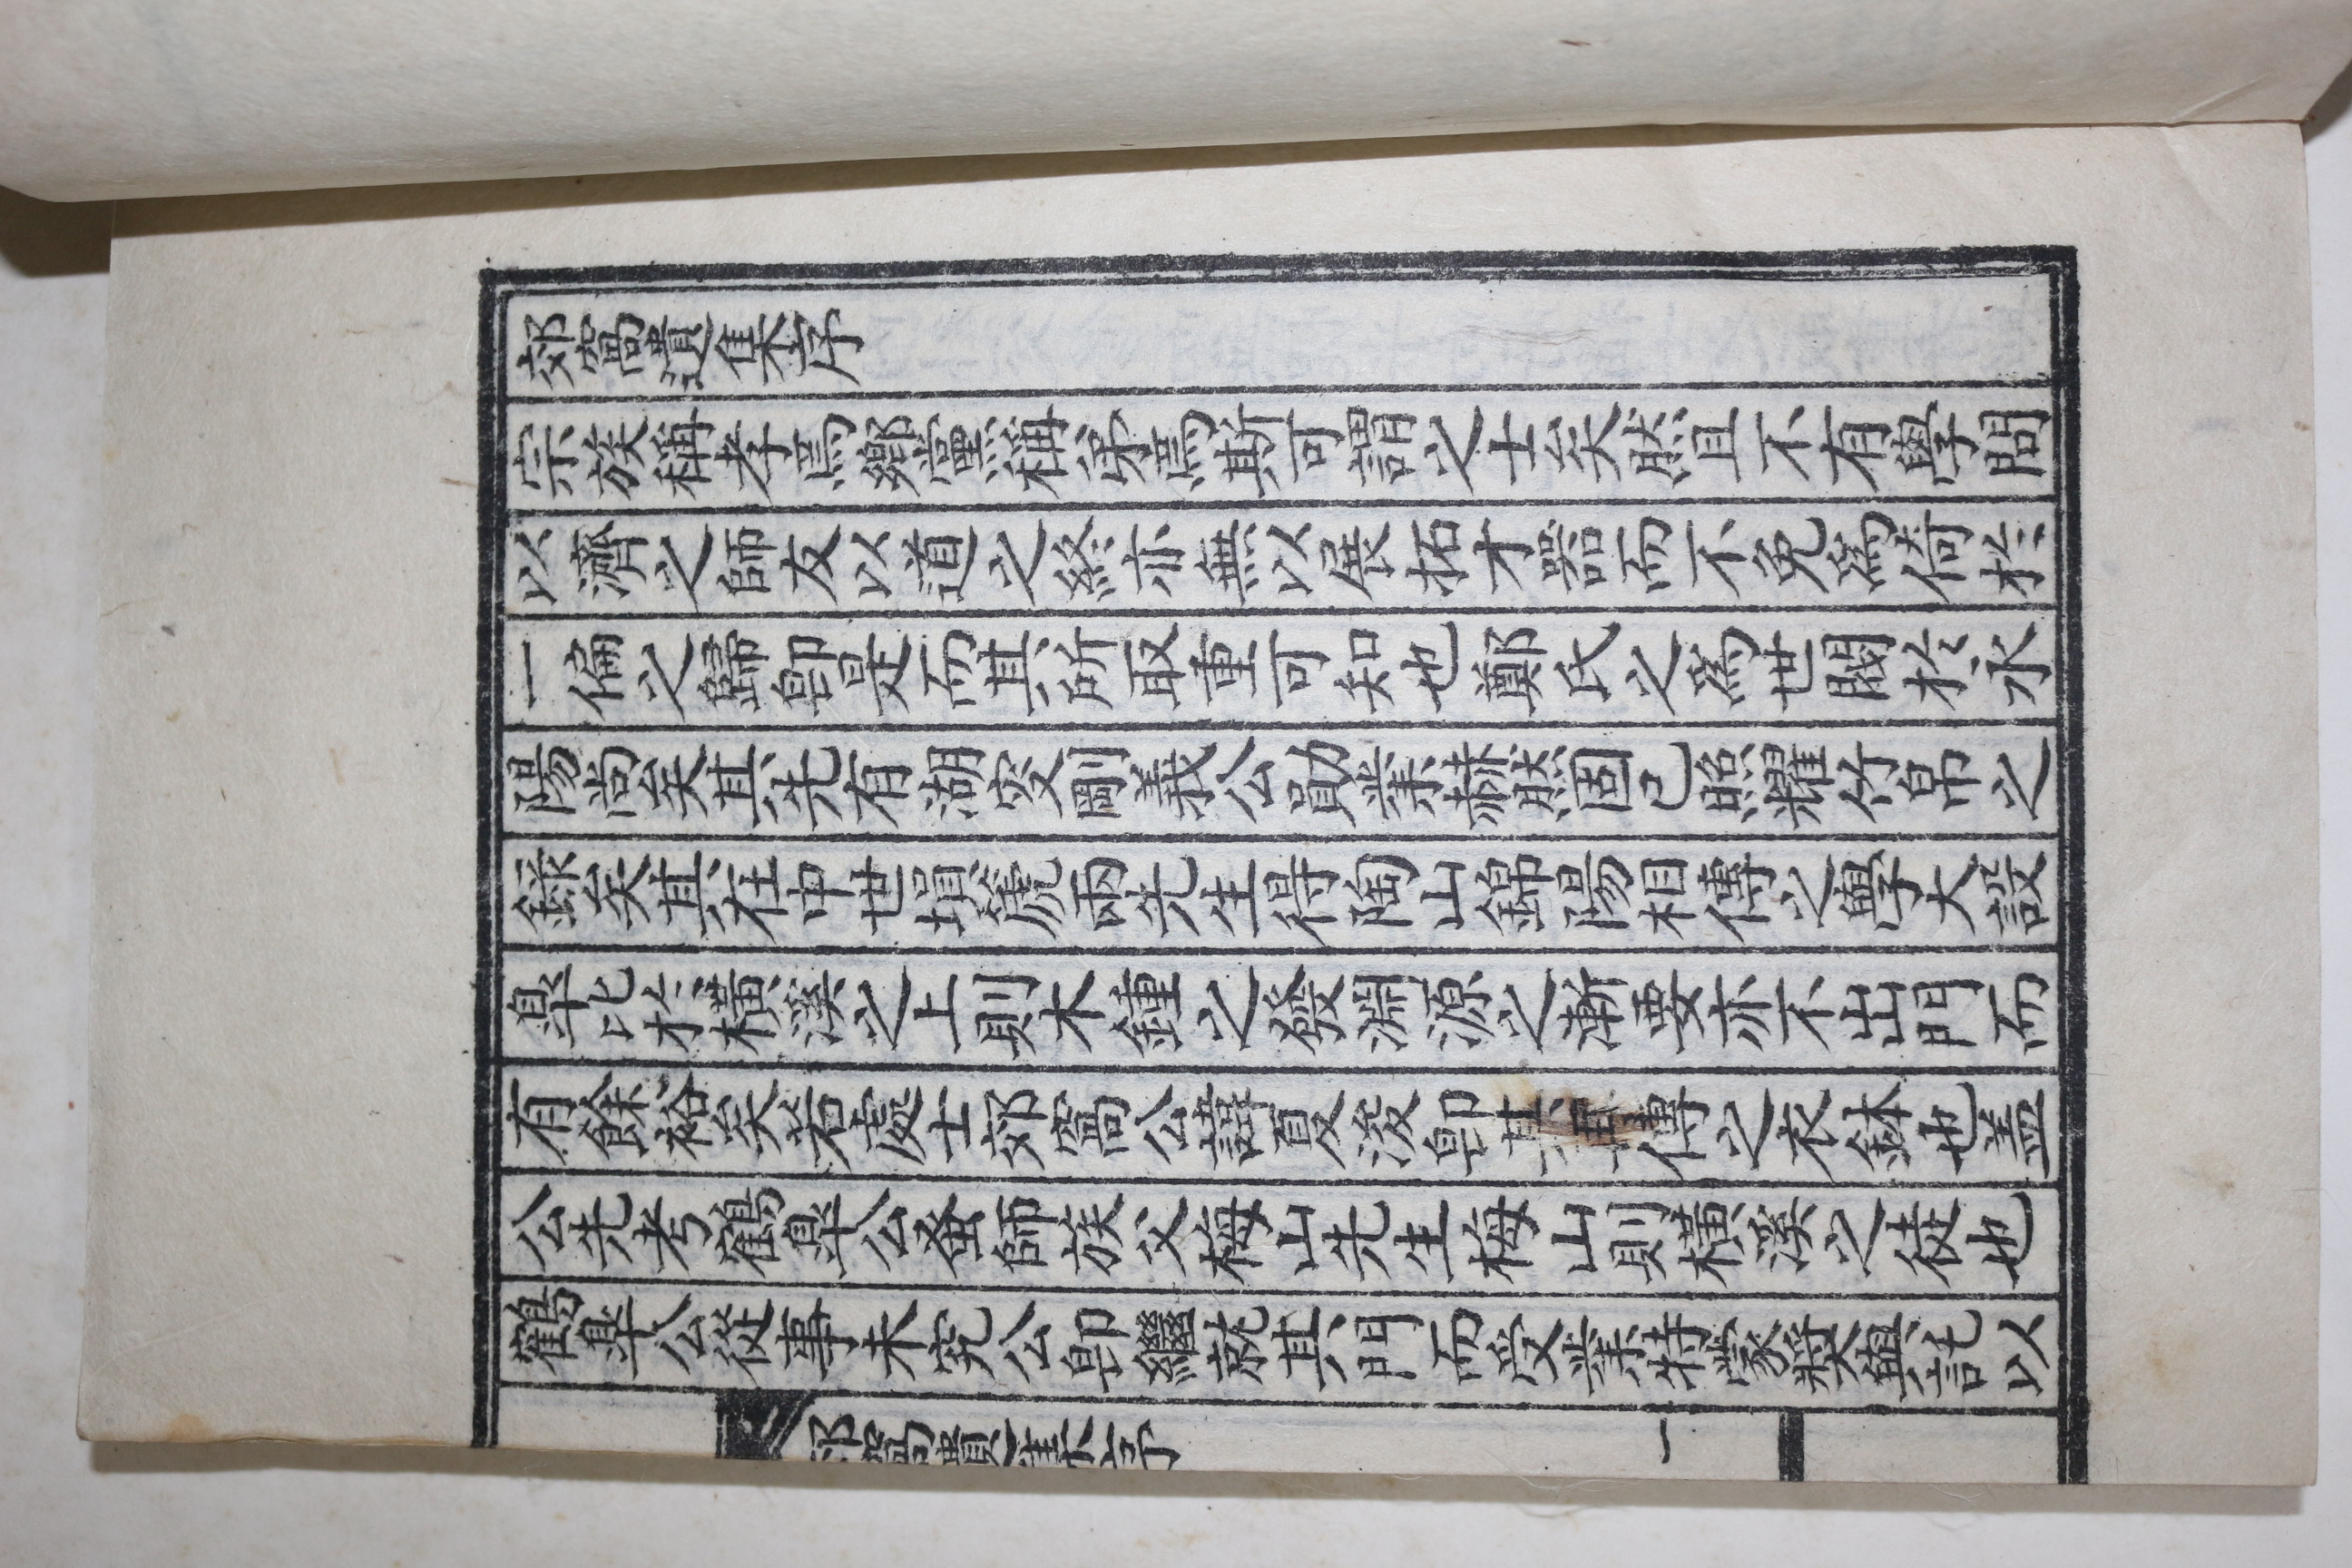 郊窩遺集序
宗族稱孝焉鄉黨稱弟焉斯可謂之士矣然且不有學問
以濟之師友以道之終亦無以展拓才器而不免爲倚於
一偏之歸卽是而其所取重可知也鄭氏之爲世閥於永
陽尚矣其先有湖叟剛義公勛業赫然固已照耀竹帛之
錄矣其在中世塤篪兩先生得陶山錦陽相傳之學大設
皐比於橫溪之上則木鍾之發淵源之漸要亦不出門而
有餘裕矣若處士郊窩公諱夏浚卽其傳之衣鉢也盖
公先考鶴皐公蚤師族父梅山先生梅山則橫溪之徒也
鶴皐公從事未究公卽繼就其門而受業特蒙奬與託以
郊窩遺集序
一